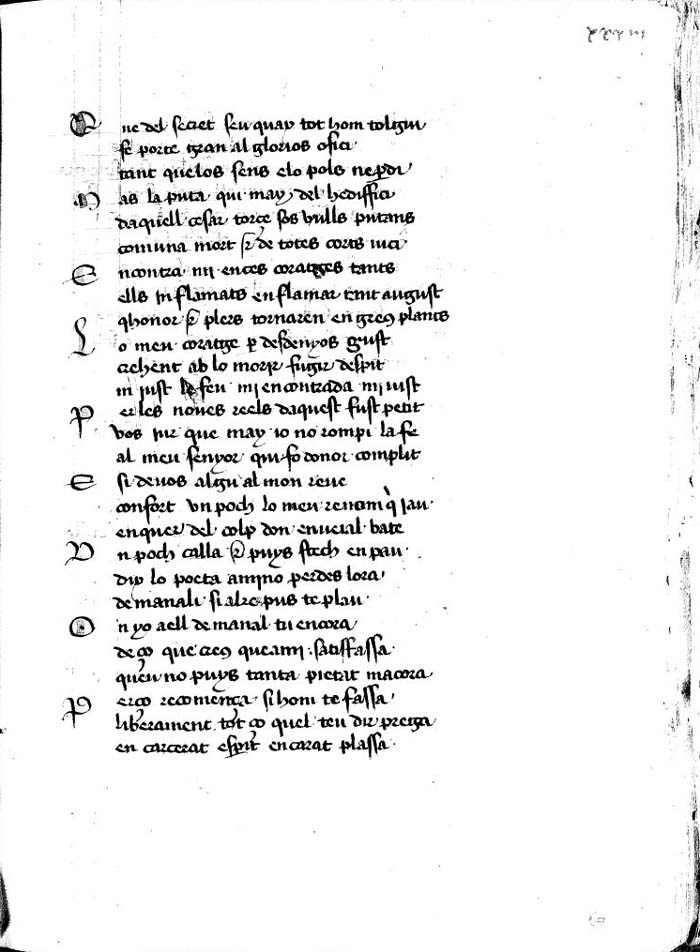 xxxiij
Que del secret seu quax tot hom tolgui
fe porte gran al glorios ofici
tant quelos sens elo pols neperdi
Mas la puta qui may del hediffici
daquell cesar torce sos vulls putans
comuna mort & de totes corts vici
Encontra mi ences coratges tants
ells inflamats enflamar tant august
qhonor & plers tornaren en greus plants
Lo meu coratge per desdenyos gust
crehent ab lo morir fugir despit
iniust feu mi encontra da mi iust
Per les noues reels daquest fust petit
vos iur que may io no rompi la fe
al meu senyor qui fo donor complit
E si deuos algu al mon reue
confort vn poch lo meu renom q iau
enquer del colp don enueia l bate
Vn poch calla & puys stech en pau
dix lo poeta amino perdes lora
demanali si alre pus te plau
On yo aell demanal tu encora
de ço que creu queami satisfassa
queu no puys tanta pietat macora
Perço recomença si hom te fassa
liberament tot ço quel teu dir prega
en carcerat esperit encarat plassa